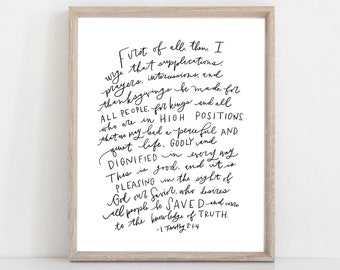 First of all, then, I
urge that supplications,
prayers, intercessions, and
thanksgivings be made for
ALL PEOPLE, for kings and all
who are in HIGH POSITIONS
that we may lead a peaceful AND
quiet life, GODLY and
DIGNIFIED in every way
This is good, and it is
PLEASING in the sight of
God our Savior, who desires
all people be SAVED and come
to the knowledge of TRUTH.
-1 Timothy 2:1-4